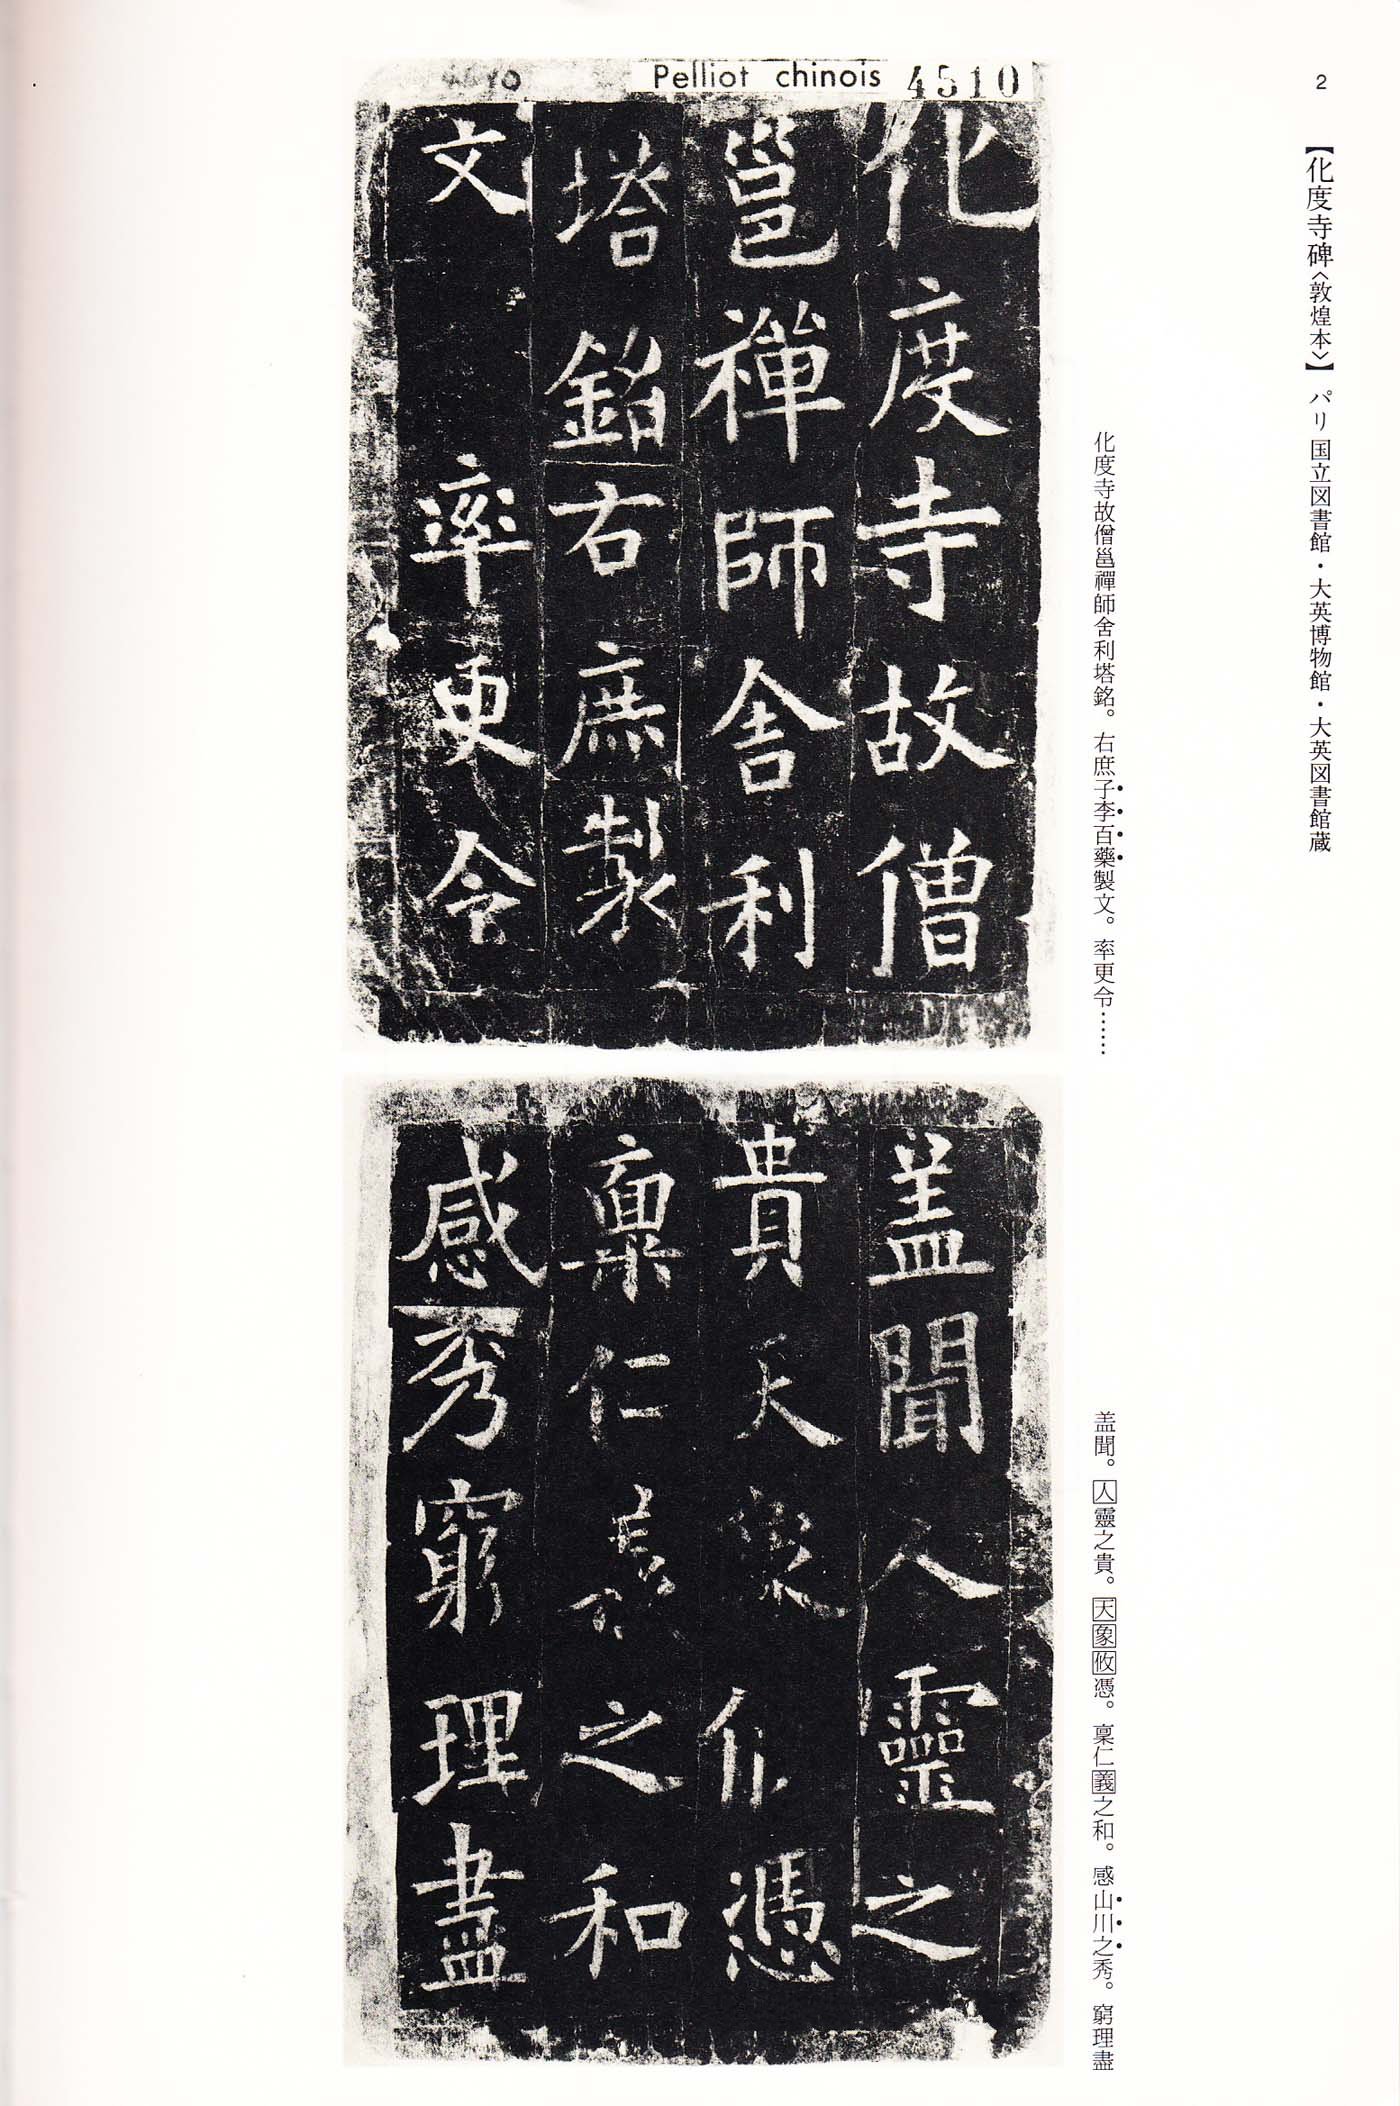 2
【化度寺碑〈敦煌本〉】パリ国立図書館・大英博物館・大英図書館蔵
化度寺故僧邕禪師舍利塔銘。右庶子李百藥製文。率更令……
Pelliot chinois 4510
4510
化度寺故僧
邕禪師舍利
塔銘右庶製
文 率更令
盖聞。人靈之貴。天象攸憑。稟仁義之和。感山川之秀。窮理盡
盖聞人靈之
貴天象攸憑
稟仁義之和
感秀窮理盡